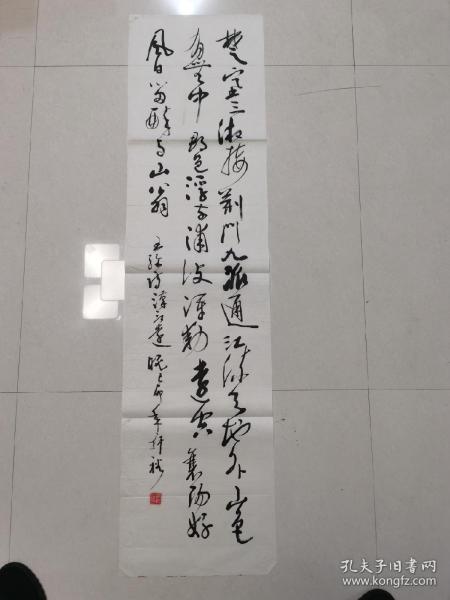 楚塞三湘接荆门九派通江流天地外山色
有无中郡邑浮前浦波澜动远空襄阳好
风日留醉与山翁
王维诗汉江临眺己卯年
孔夫子旧书网
www.kongfz.com